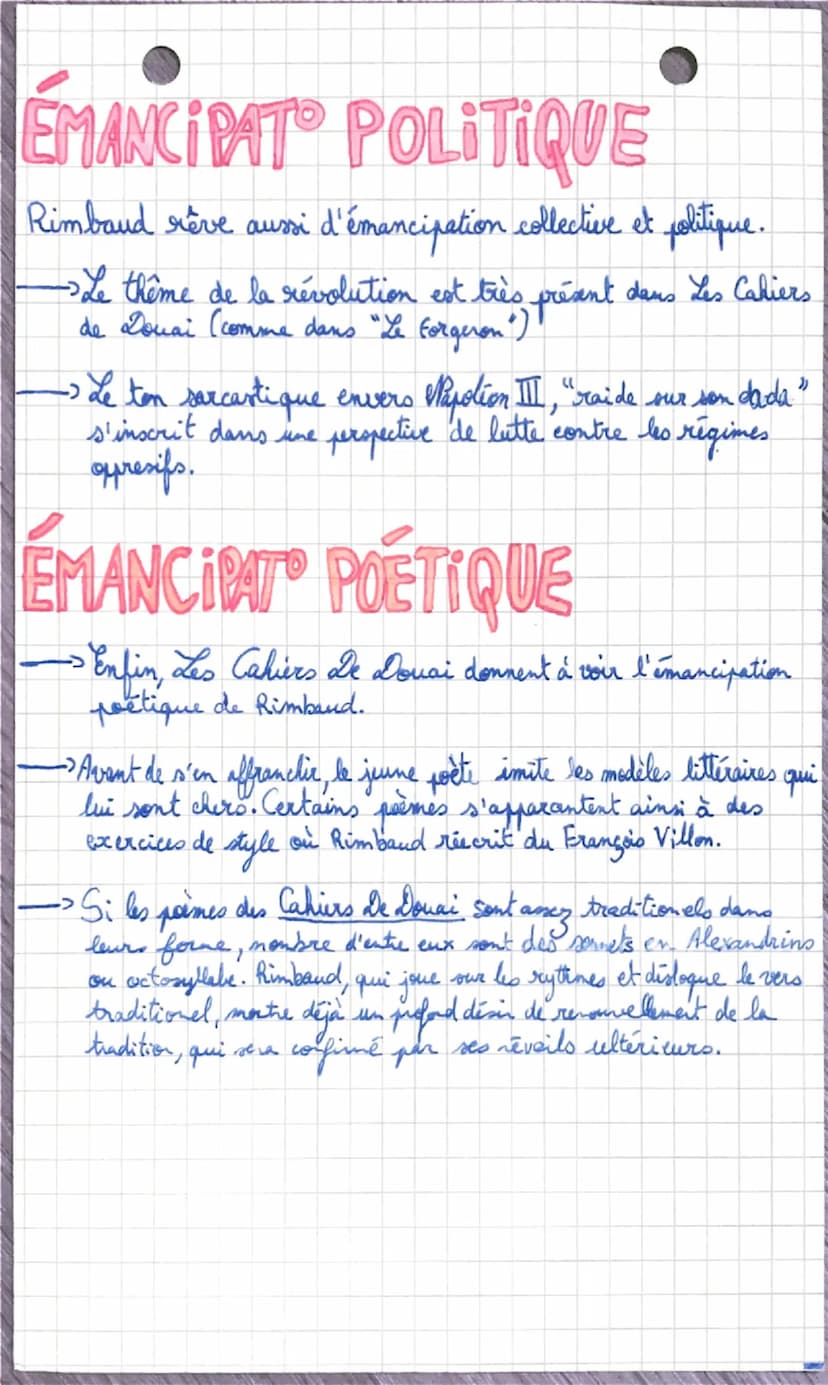 ÉMANCiPAT° POLiTiQUE
Rimbaud rêve aussi d'émancipation collective et politique.
→ Le thême de la révolution est très présent dans Les Cahiers
de Douai (comme dans "Le Forgeron")
→ Le ton sarcastique envers Napoléon III, "raide sur son dada"
s'inscrit dans une perspective de lutte contre les régimes
oppresifs.
ÉMANCiPAT° POÉTiQUE
→ Enfin, Les Cahiers De Douai donnent à voir l'émancipation
poétique de Rimbaud.
→ Avant de s'en affranchir, le jeune poète imite les modèles littéraires qui
lui sont chers. Certains poèmes s'apparantent ainsi à des
exercices de style où Rimbaud réecrit du François Villon.
→ Si les poèmes des Cahiers De Douai sont assez traditionels dans
leurs forme, nombre d'entre eux sont des sonnets en Alexandrins
ou octosyllabe. Rimbaud, qui joue sur les rythmes et disloque le vers
traditionel, montre déjà un profond désir de renouvellement de la
tradition, qui sera confirmé par ses ultérieurs.